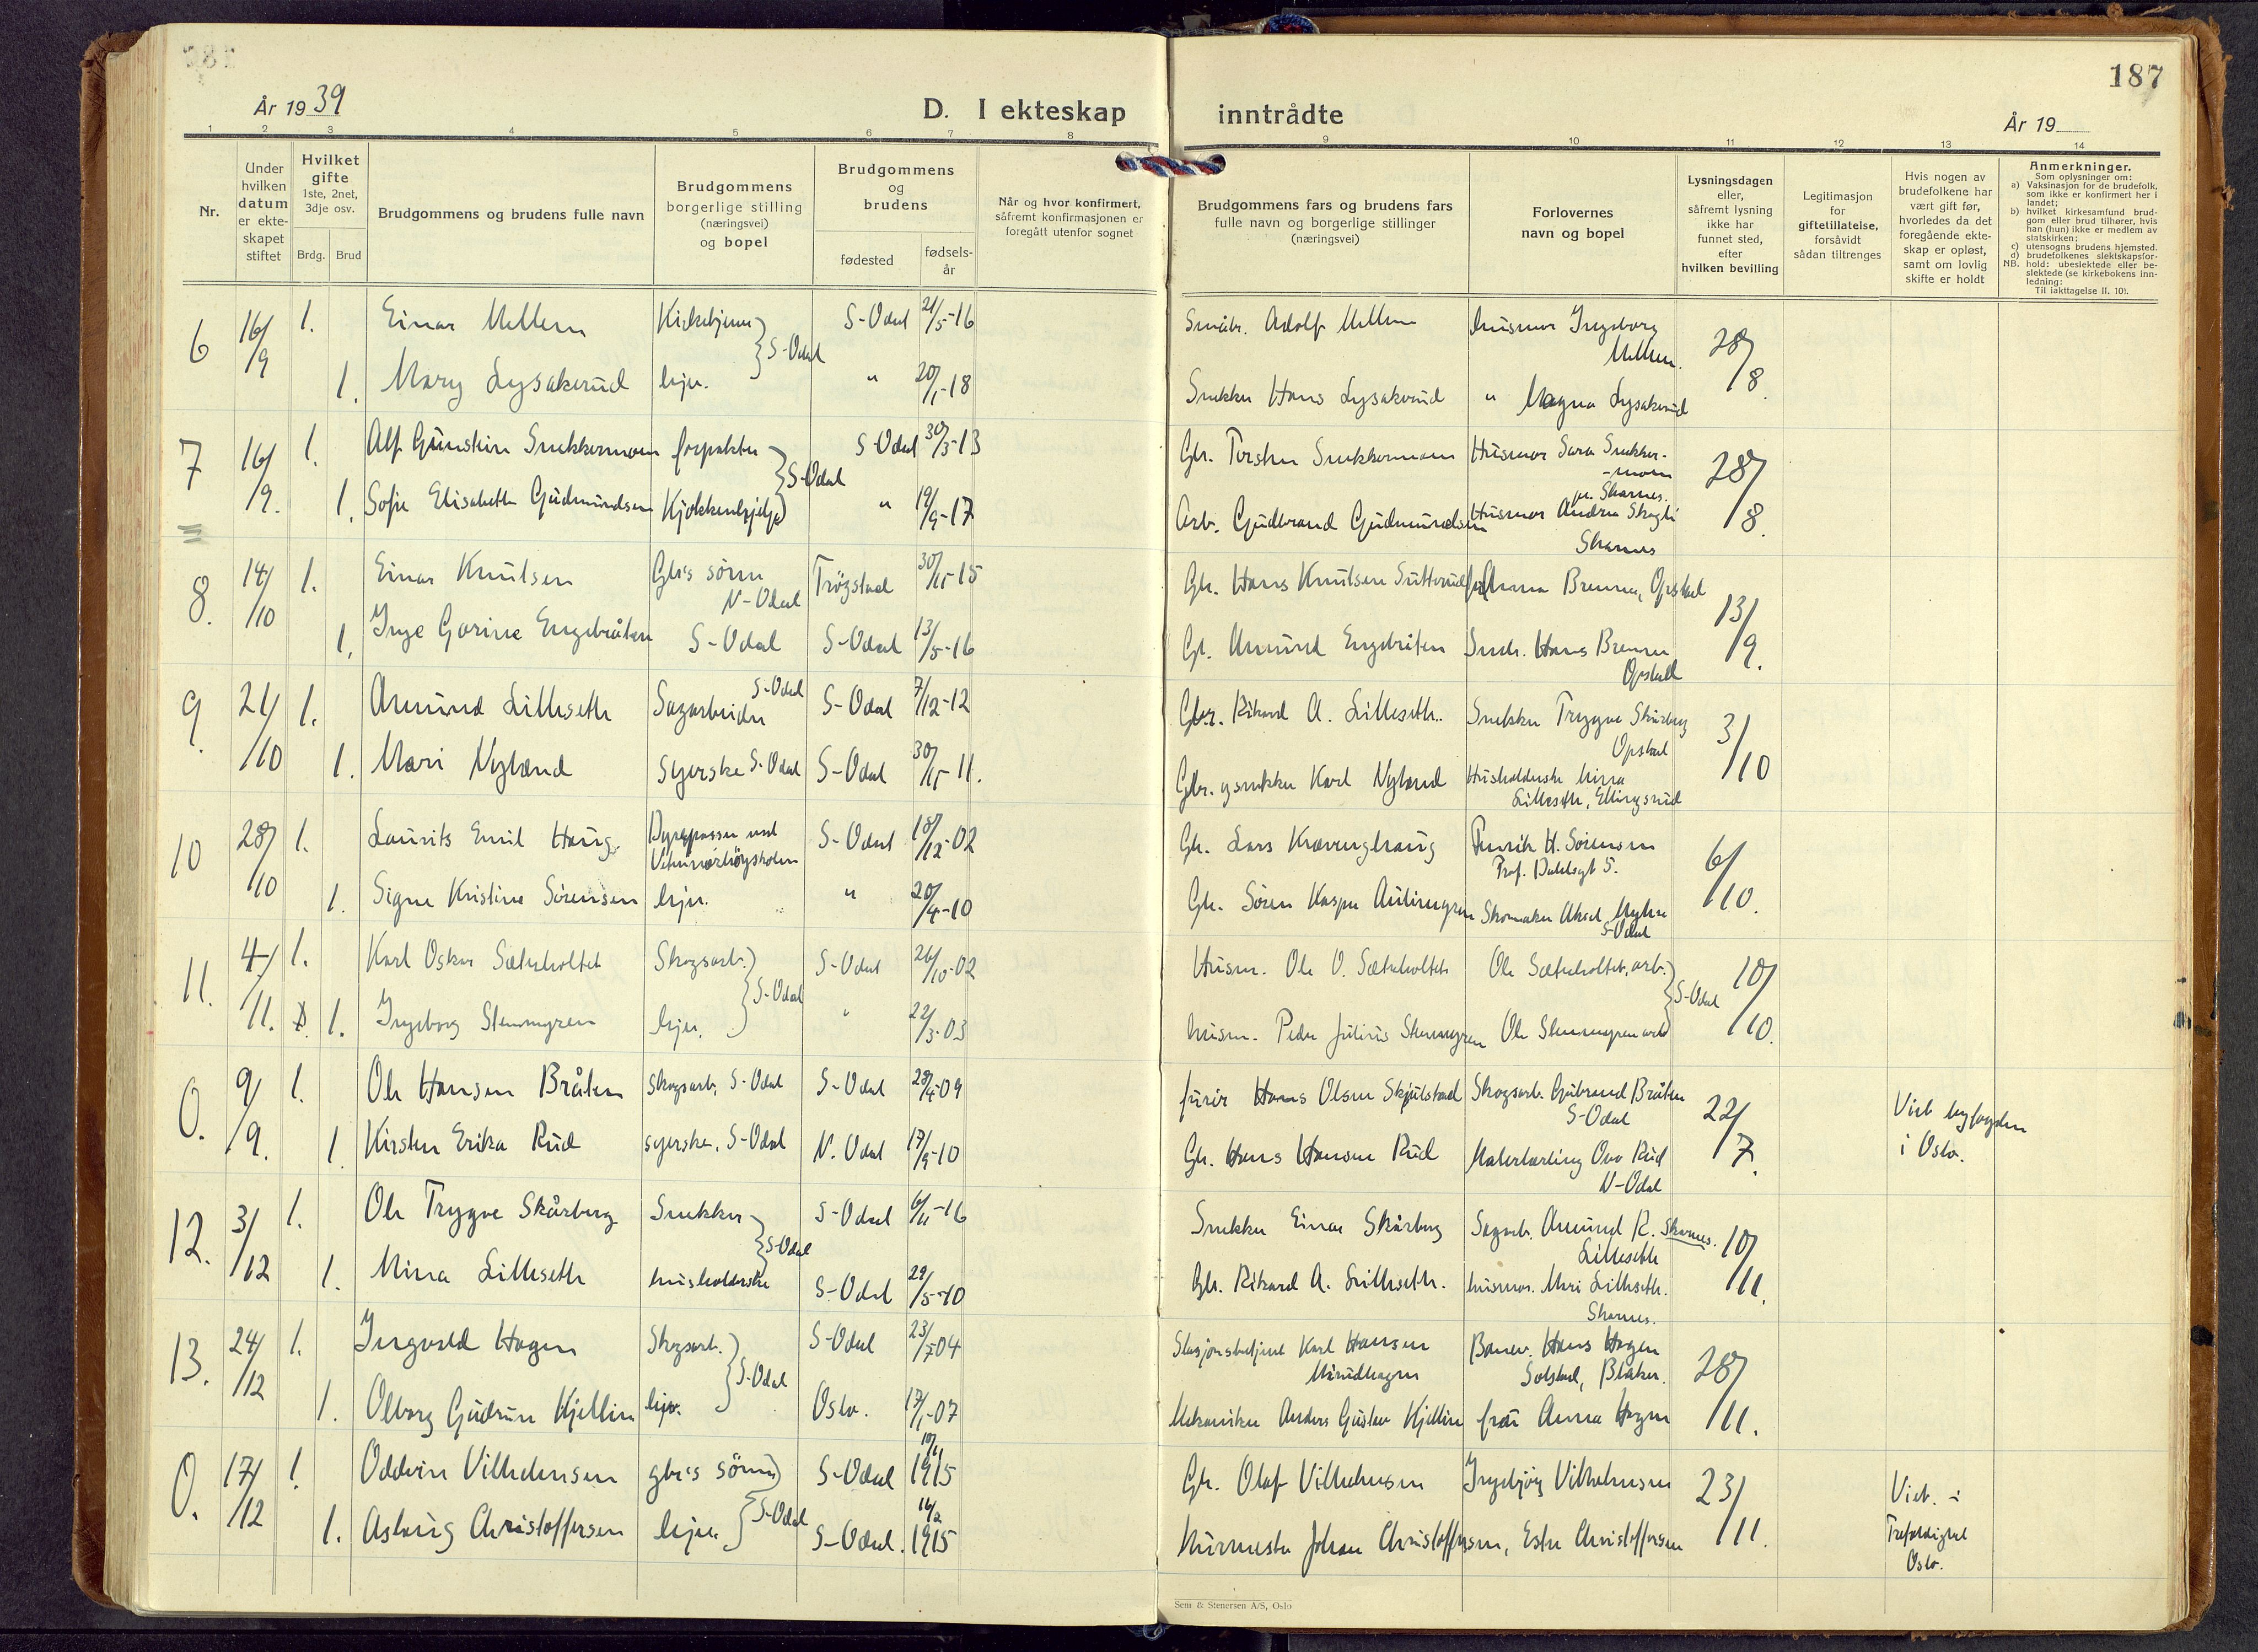 187
År 1939
D. I ekteskap inntrådte
År 19
1 2 3 4 5 6 7 8 9 10 11 12 13 14
Nr.
Under hvilken datum er ekte-skapet stiftet
Hvilket gifte 1ste, 2net, 3dje osv.
Brdg. Brud
Brudgommens og brudens fulle navn
Brudgommens borgerlige stilling (næringsvei) og bopel
Brudgommens og brudens
fødested
fødsels-år
Når og hvor konfirmert, såfremt konfirmasjonen er foregått utenfor sognet
Brudgommens fars og brudens fars fulle navn og borgerlige stillinger (næringsvei)
Forlovernes navn og bopel
Lysningsdagen eller, såfremt lysning ikke har funnet sted, efter hvilken bevilling
Legitimasjon for giftetillatelse, forsåvidt sådan tiltrenges
Hvis nogen av brudefolkene har vært gift før, hvorledes da det foregående ekte-skap er opløst, samt om lovlig skifte er holdt
Anmerkninger.
Som oplysninger om:
a) Vaksinasjon for de brudefolk, som ikke er konfirmert her i landet;
b) hvilket kirkesamfund brud-gom eller brud tilhører, hvis han (hun) ikke er medlem av statskirken;
c) utensogns brudens hjemsted.
d) brudefolkenes slektskapsfor-hold: ubeslektede eller be-slektede (se kirkebokens inn-ledning:
NB. Til iakttagelse II, 10).
6 16/9 1. Einar Mellem S-Odal 21/5-16 Småbr. Adolf Mellem husmor Ingeborg Mellem. 28/8
1. Mary Lysakerud hju. S-Odal " 20/1-18 Snekker Hans Lysakerud " Magna Lysakerud
7 16/9. 1. Alf Gunstein Snekkermoen forpakter S-Odal 30/3-13 Gbr. Torsten Snekkermoen Husmor Sara Snekker-moen pr. Skarnes. 28/8.
1. Sofie Elisabeth Gudmundsen Kjøkkenhjelp S-Odal " 19/9-17 Arb. Gudbrand Gudmundsen Husmor Andrea Skogli Skarnes
8. 14/10 1. Einar Knutsen Gbr's sønn N-Odal Trøgstad 30/11-15 Gbr. Hans Knutsen Sutterud Anna Brenna, Opstad 13/9.
1. Inge Gorine Engebråten S-Odal S-Odal 13/5-16 Gb. Amund Engebråten Snek. Hans Brenna Opstad
9. 21/10 1. Amund Lilleseth Sagarbeider S-Odal S-Odal 7/12-12 Gbr. Rikard A. Lilleseth. Snekker Trygve Skårberg Opstad 3/10
1. Mari Nyland Syerske S-Odal S-Odal 30/11-11. Gbr. og snekker Karl Nyland Husholderske Mina Lilleseth, Ellingsrud
10 28/10 1. Laurits Emil Haug. Dyrepasser ved Veterinærhøgskolen S-Odal 18/12-02 Gbr. Lars Kræmmerhaug Henrik H. Sørensen Prof. Dahlsgt 5. 6/10.
1. Signe Kristine Sørensen hju. " 20/4-10 Gbr. Søren Kasper Skomaker Aksel Myhre S-Odal
11. 4/11. 1. Karl Oskar Sæterholtet Skogsarb. S-Odal 26/10-02 Husm. Ole O. Sæterholtet Ole Sæterholtet, arb. S-Odal 10/10.
1. Ingeborg Stenmyren hju. S-Odal " 22/3-03 husm. Peder Julius Stenmyren Ole Stenmyren arb.
0. 9/9. 1. Ole Hansen Bråten Skogsarb, S-Odal S-Odal 28/4-09 furer Hans Olsen Skjulstad Skogsarb. Gubrand Bråten S-Odal 22/7. Viet byfogden i Oslo.
1. Kirsten Erika Rud syerske, S-Odal N. Odal 17/9-10 Gbr. Hans Hansen Rud Malerlærling Ove Rud N-Odal
12. 3/12 1. Ole Trygve Skårberg Snekker S-Odal 6/11-16 Snekker Einar Skårberg Sagarb. Amund R. Lilleseth Skarnes. 10/11.
1. Mina Lilleseth husholderske S-Odal S-Odal 29/5-10 Gbr. Rikard A. Lilleseth. husmor. Mari Lilleseth. Skarnes.
13. 24/12 1. Ingvald Hagen Skogsarb. S-Odal 23/7-04 Stasjonsbetjent Karl Hansen Banev. Hans Hagen Solstad, Blaker. 28/11.
1. Olborg Gudrun Kjellin hju. S-Odal Oslo. 17/1-07 Mekaniker Anders Gustav Kjellin fru Anna Hagen
0. 17/12 1. Oddvin Vilhelmsen gbr's sønn S-Odal 1915 Gbr. Olaf Vilhelmsen Ingebjørg Vilhelmsen 23/11. Viet. i Trefoldighet Oslo.
1. Aslaug Christoffersen hju. S-Odal S-Odal. 16/2 1915 Murmester Johan Christoffersen, Ester Christoffersen
Sem & Stenersen A/S, Oslo